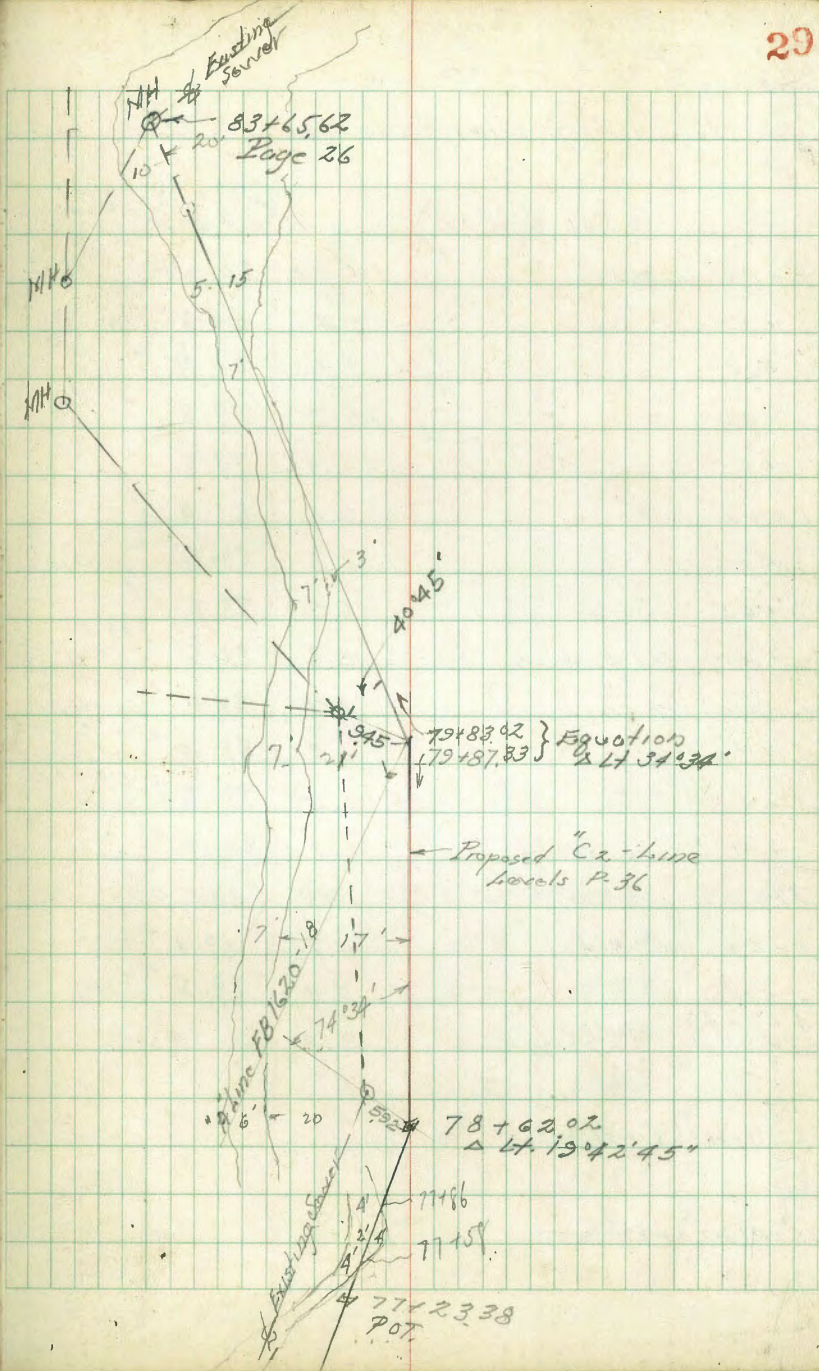 29
Existing
Sewer
MH
83+65.62
Page 26
20'
10
MH
5
15
7'
MH
3'
7'
40°45'
9.45
79+83.02 } Equation
79+87.33 Δ Lt 34°34'
7'
21'
Proposed "C2-Line
Levels P-36
7
17'
"A" Line FB 1620-18
74°34'
6'
20
5.92
78+62.02
Δ Lt. 19°42'45"
Existing Sewer
4'
77+86
2'
4'
77+58
4'
77+23.38
POT.